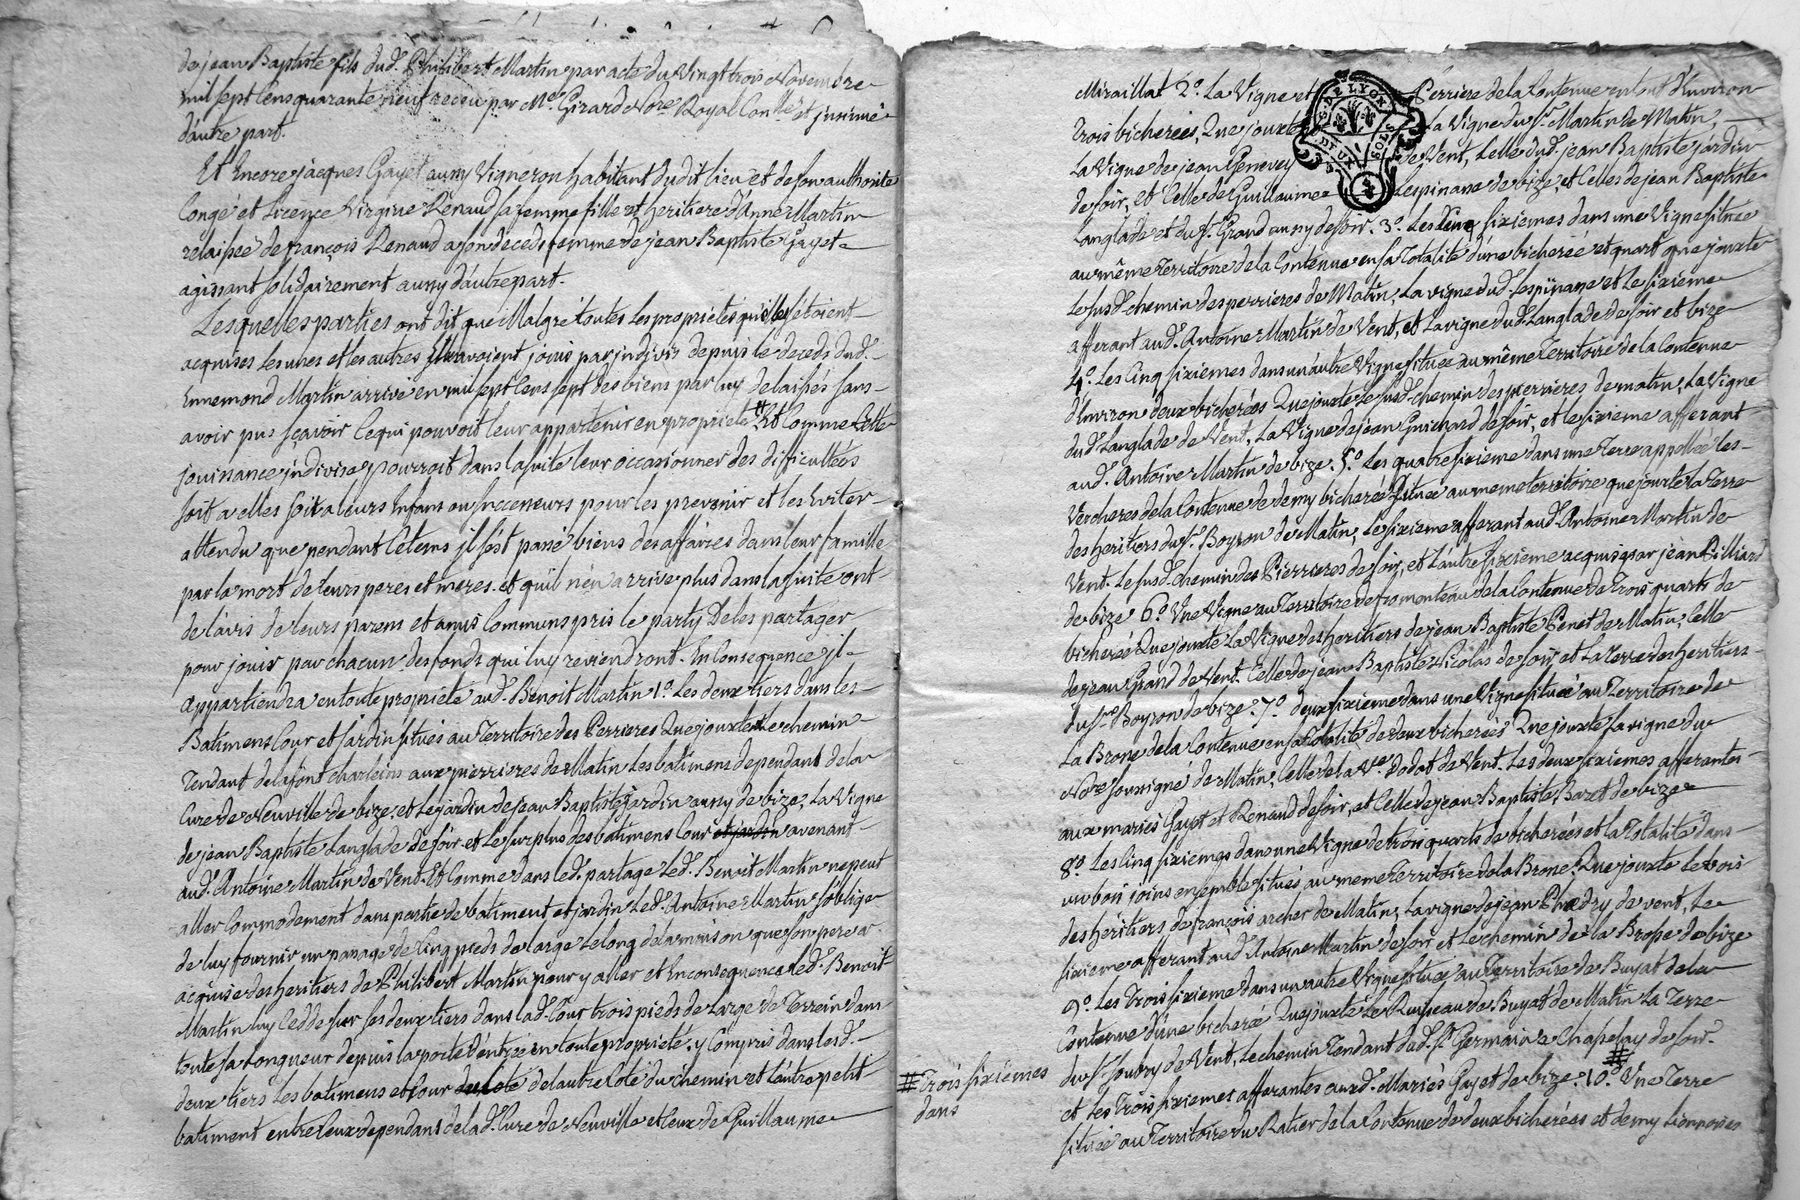 de jean Baptiste fils dud. Philibert Martin par acte du Vingt trois Novembre
mil sept Cens quarante neuf recu par Me. Girard Nore. Royal Con.lle et jnsinué
d'autre part.
Et Encore jacques Gayet aussy Vigneron habitant dudit lieu et de son authorité
Congé et Licence Virginie Renaud sa femme fille et heritiere d'Anne Martin
relaissée de françois Renaud a son deceds femme de jean Baptiste Gayet
agissant solidairement aussy d'autre part.
Lesquelles parties ont dit que Malgré toutes Les proprietés qu'elles s'étoient
acquises les unes et les autres Elles avoient joüis par jndivis depuis le deceds dud.
Ennemond Martin arrivé en mil sept Cens sept des biens par luy delaissés sans
avoir pus sçavoir Ce qui pouvoit leur appartenir en propriété # Et Comme Cette
jouissance jndivise pourroit dans la suite leur occasionner des difficultées
soit a elles soit a leurs Enfans ou successeurs pour les prevenir et les Eviter
attendu que pendant Cetems jl s'est passé biens des affaires dans leur famille
par la mort de leurs peres et meres et qu'il n'en arrive plus dans la suite ont
de l'avis de leurs parens et amis Communs pris le party De les partager
pour joüir par chacun des fonds qui luy reviendront. En Consequence jl
appartiendra en toute propriété aud. Benoit Martin 1o. Les deux tiers dans les
Batimens Cour et jardin situés au Territoire des Perrieres Que jouxte le chemin
Tendant de la font charleins aux pierrieres de Matin Les batimens dependant de la
Cure de Neuville de bize, et Le jardin de jean Baptiste jardin aussy de bize, La Vigne
de jean Baptiste Langlade de soir et Le surplus des batimens Cour et jardin avenant
aud. Antoine Martin de Vent. Et Comme dans led. partage Led. Benoit Martin ne peut
aller Commodement dans partie de batiment et jardin Led. Antoine Martin s'oblige
de luy fournir un passage de Cinq pieds de large Le long de la maison que son pere a
acquise des heritiers de Philibert Martin pour y aller et En consequence Led. Benoit
Martin luy Cedde sur ses deux tiers dans lad. Cour trois pieds de Large de Terrein dans
toute sa Longueur depuis la porte d'entrée en toute propriété, y Compris dans lesd.
deux tiers Les batimens et Cour de l'autre Coté du chemin et l'autre petit
batiment entre Ceux dependans de lad. Cure de Neuville et Ceux de Guillaume
Miraillat 2o. La Vigne et Perriere de la Contenue en tout d'Environ
G. DE LYON
DEUX SOLS
trois bicherées, Que jouxte La Vigne du Sr. Martin de Matin,
La Vigne de jean Genevey de Vent, Celle dud. jean Baptiste jardin
de soir, et Celle de Guillaume Lespinane de bize, et Celles de jean Baptiste
Langlade et du Sr. Grand aussy de soir. 3o. Les Cinq sixiemes dans une Vigne située
au même Territoire de la Contenue en sa Totalité d'une bicherée et quart que jouxte
le susd. chemin des perrieres de Matin, La vigne dud. Lespinane et Le sixieme
afferant aud. Antoine Martin de Vent, et La vigne dud. Langlade de soir et bize
4o. Les Cinq sixiemes dans un autre Vigne située au même Territoire de la Contenue
d'Environ deux bicherées Que jouxte Le susd. chemin des pierrieres de matin, La Vigne
dud. Langlade de Vent, La Vigne de jean Guichard de soir, et le sixieme afferant
aud. Antoine Martin de bize. 5o. Les quatre sixieme dans une Terre appellée les
Vercheres de la Contenue de demy bicherée située au meme territoire que jouxte la Terre
des heritiers du Sr. Boyron de Matin, Le sixieme afferant aud. Antoine Martin de
Vent. Le susd. chemin des Pierrieres de soir, et L'autre sixieme acquis par jean Billiard
de bize 6o. Une Vigne au Territoire de fromenteau de la Contenue de trois quarts de
bicherée Que jouxte La Vigne des heritiers de jean Baptiste Penet de Matin, Celle
de jean Grand de Vent. Celle de jean Baptiste Nicolas de soir, et La Terre des heritiers
du Sr. Boyron de bize. 7o. deux sixieme dans une Vigne située au Territoire de
La Brone de la Contenue en sa Totalité de deux bicherées Que jouxte La vigne du
Nore. soussigné de Matin, Celle de la Ve. Dodat de Vent. Les deux sixiemes afferantes
aux mariés Gayet et Renaud de soir, et Celle de jean Baptiste Bozet de bize
8o. Les Cinq sixiemes dans une Vigne de trois quarts de bicherées et la Totalité dans
un bois joins ensemble situés au meme Territoire de la Brone. Que jouxte Le bois
des héritiers de françois archer de Matin, La vigne de jean de vent, Le
sixieme afferant aud. Antoine Martin de soir et Le chemin de la Brosse de bize
9o. Les Trois sixieme dans un autre Vigne située au Territoire de Buyat de la
Contenue d'une bicherée Que jouxte Le Ruisseau de Buyat de Matin La Terre
du Sr. Joubry de Vent, Le chemin Tendant dud. St. Germain a Chapelay de soir
et Les Trois sixiemes afferantes auxd. Mariés Gayet de bize. 10o. # Une Terre
située au Territoire du Ratier de la Contenue de deux bicherées et demy Lionnoises
# Trois sixiemes
dans